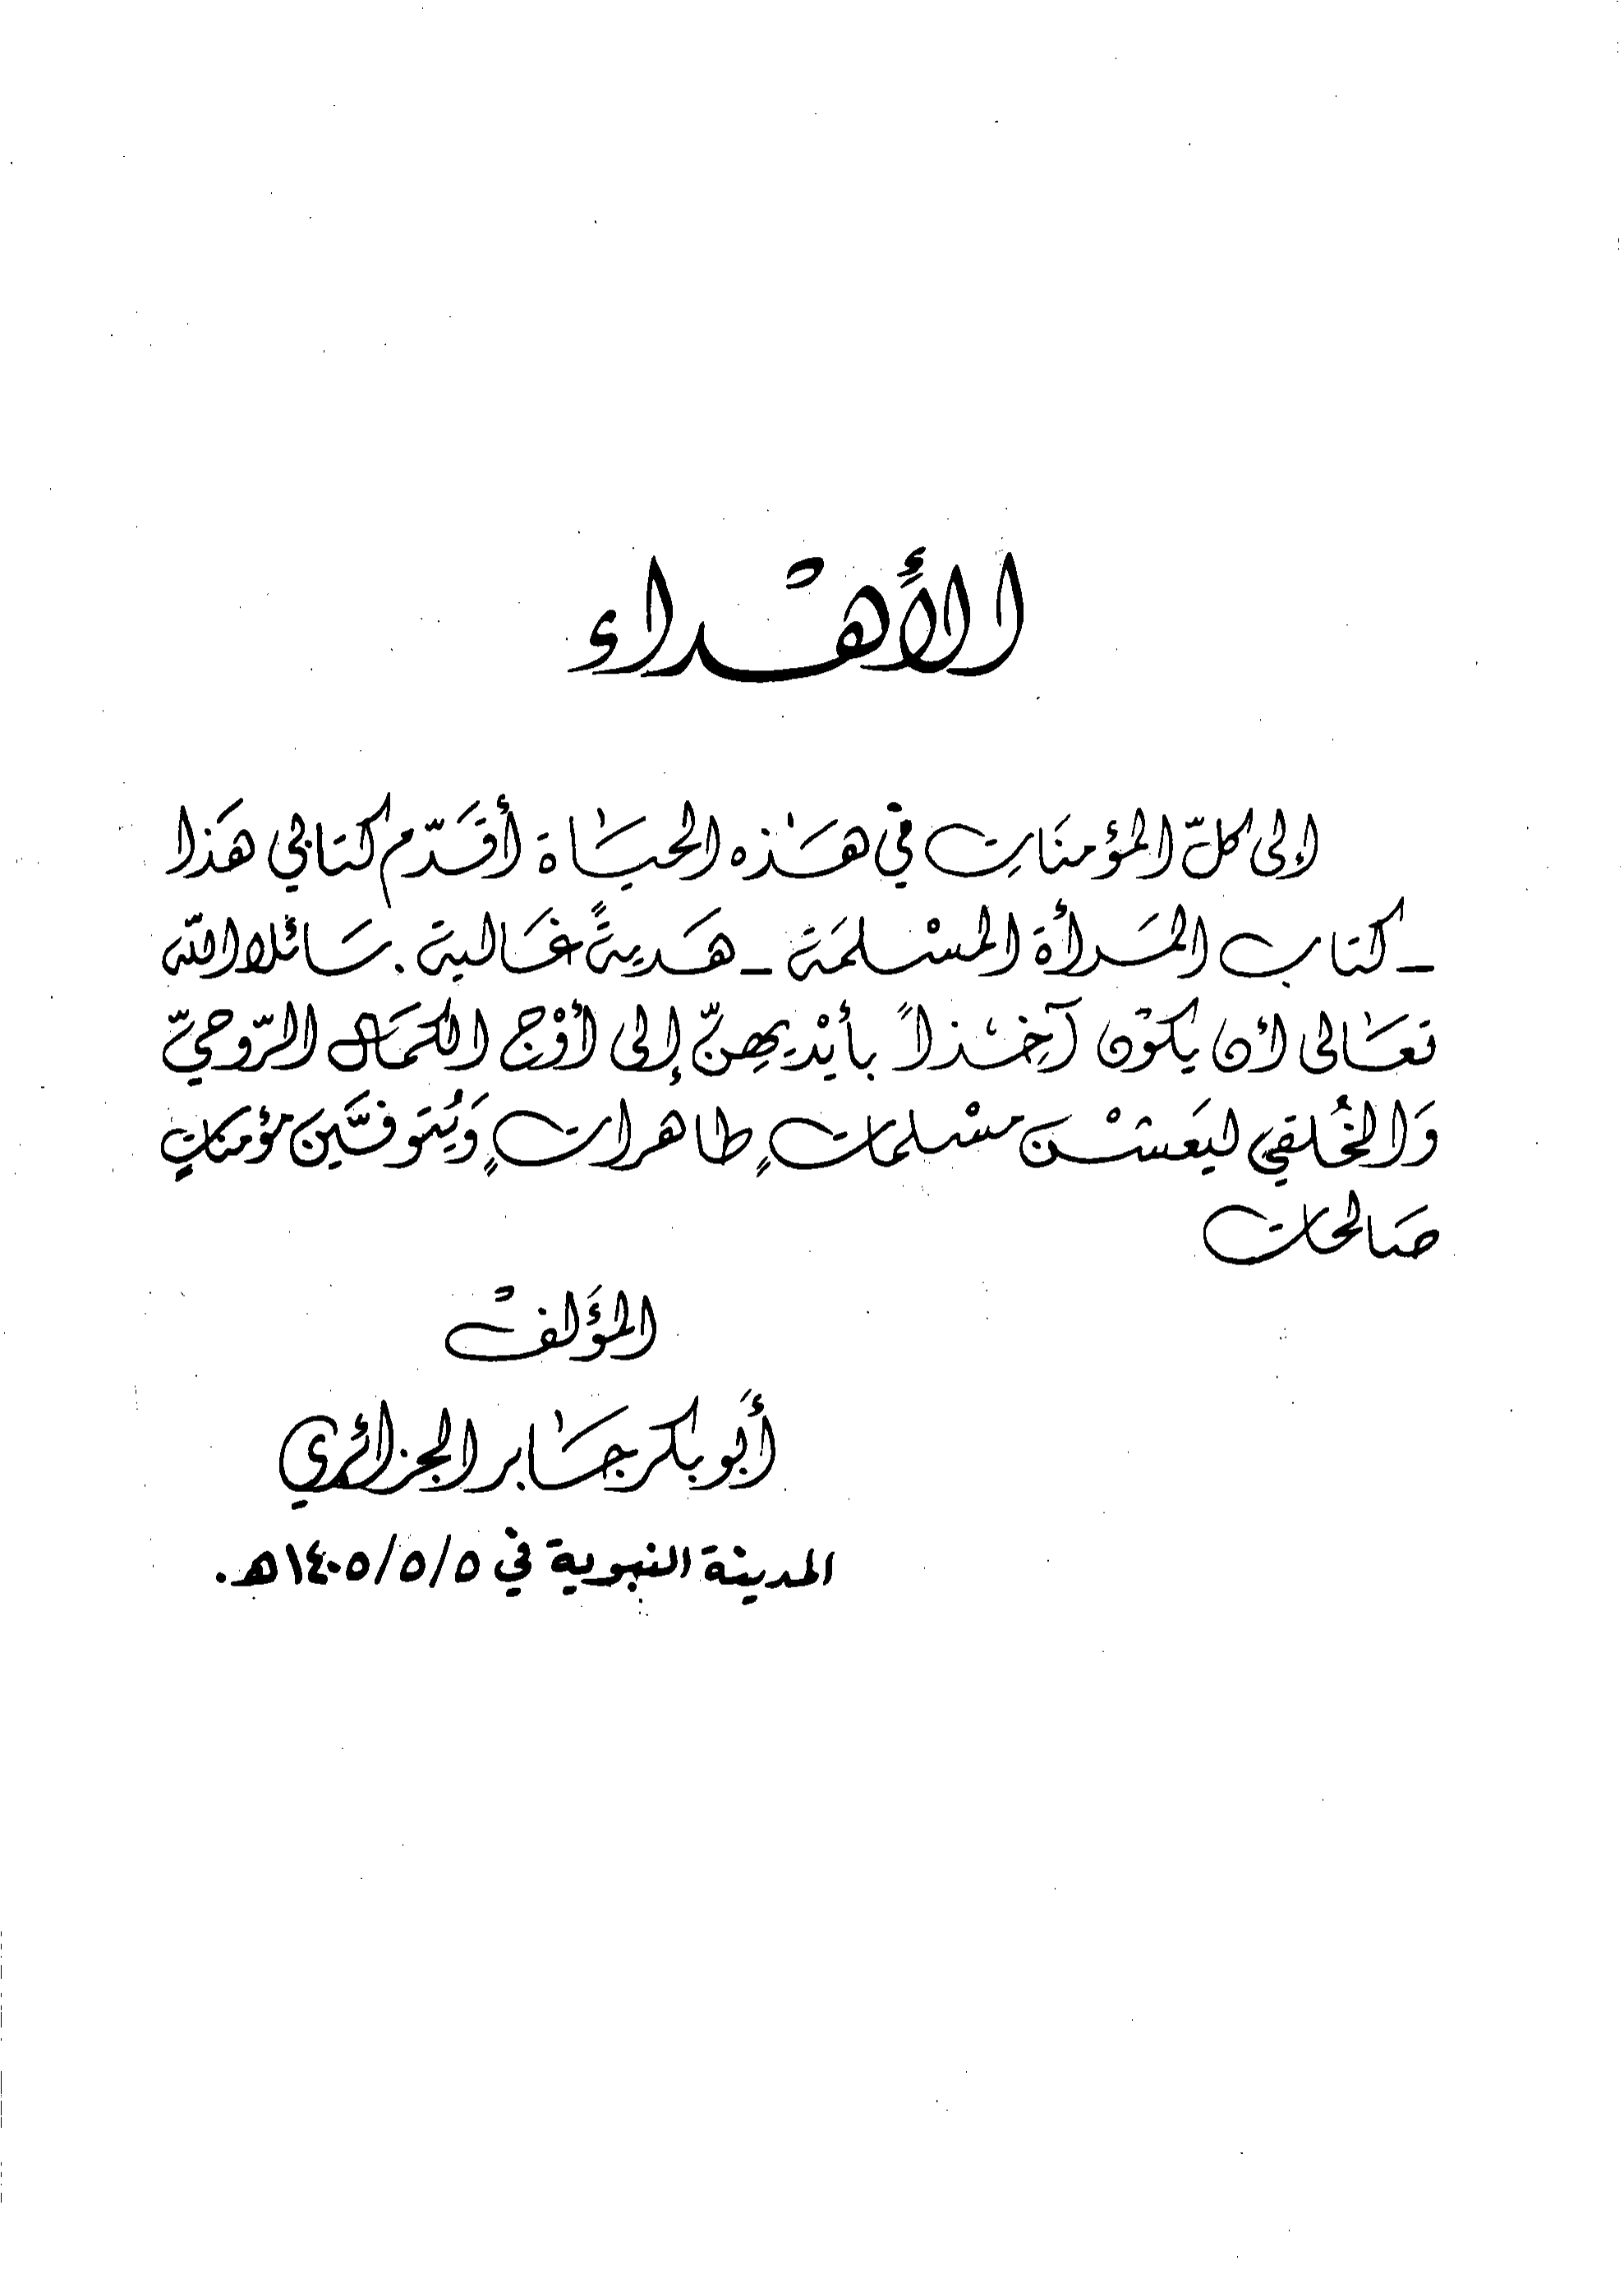 الأهْداء
إلى كلّ المؤمنَاتِ في هَذه الحيَاة أقَدّم كتابي هَذا
ـ كتاب المَرأة المسْلمَة ـ هَديةً غَالية . سَائلا الله
تعَالى أن يكوْن آخِذاً بأيْديهِنّ إلى أوْج الكمَال الرّوحيّ
وَالخُلقي ليَعشْن مسْلماتٍ طاهراتٍ وَيُتوفَّين مؤمناتٍ
صَالحات
المؤَلفْ
أَبو بكر جَابر الجزائري
المدينة النبوية في ٥/٥/١٤٠٥هـ.